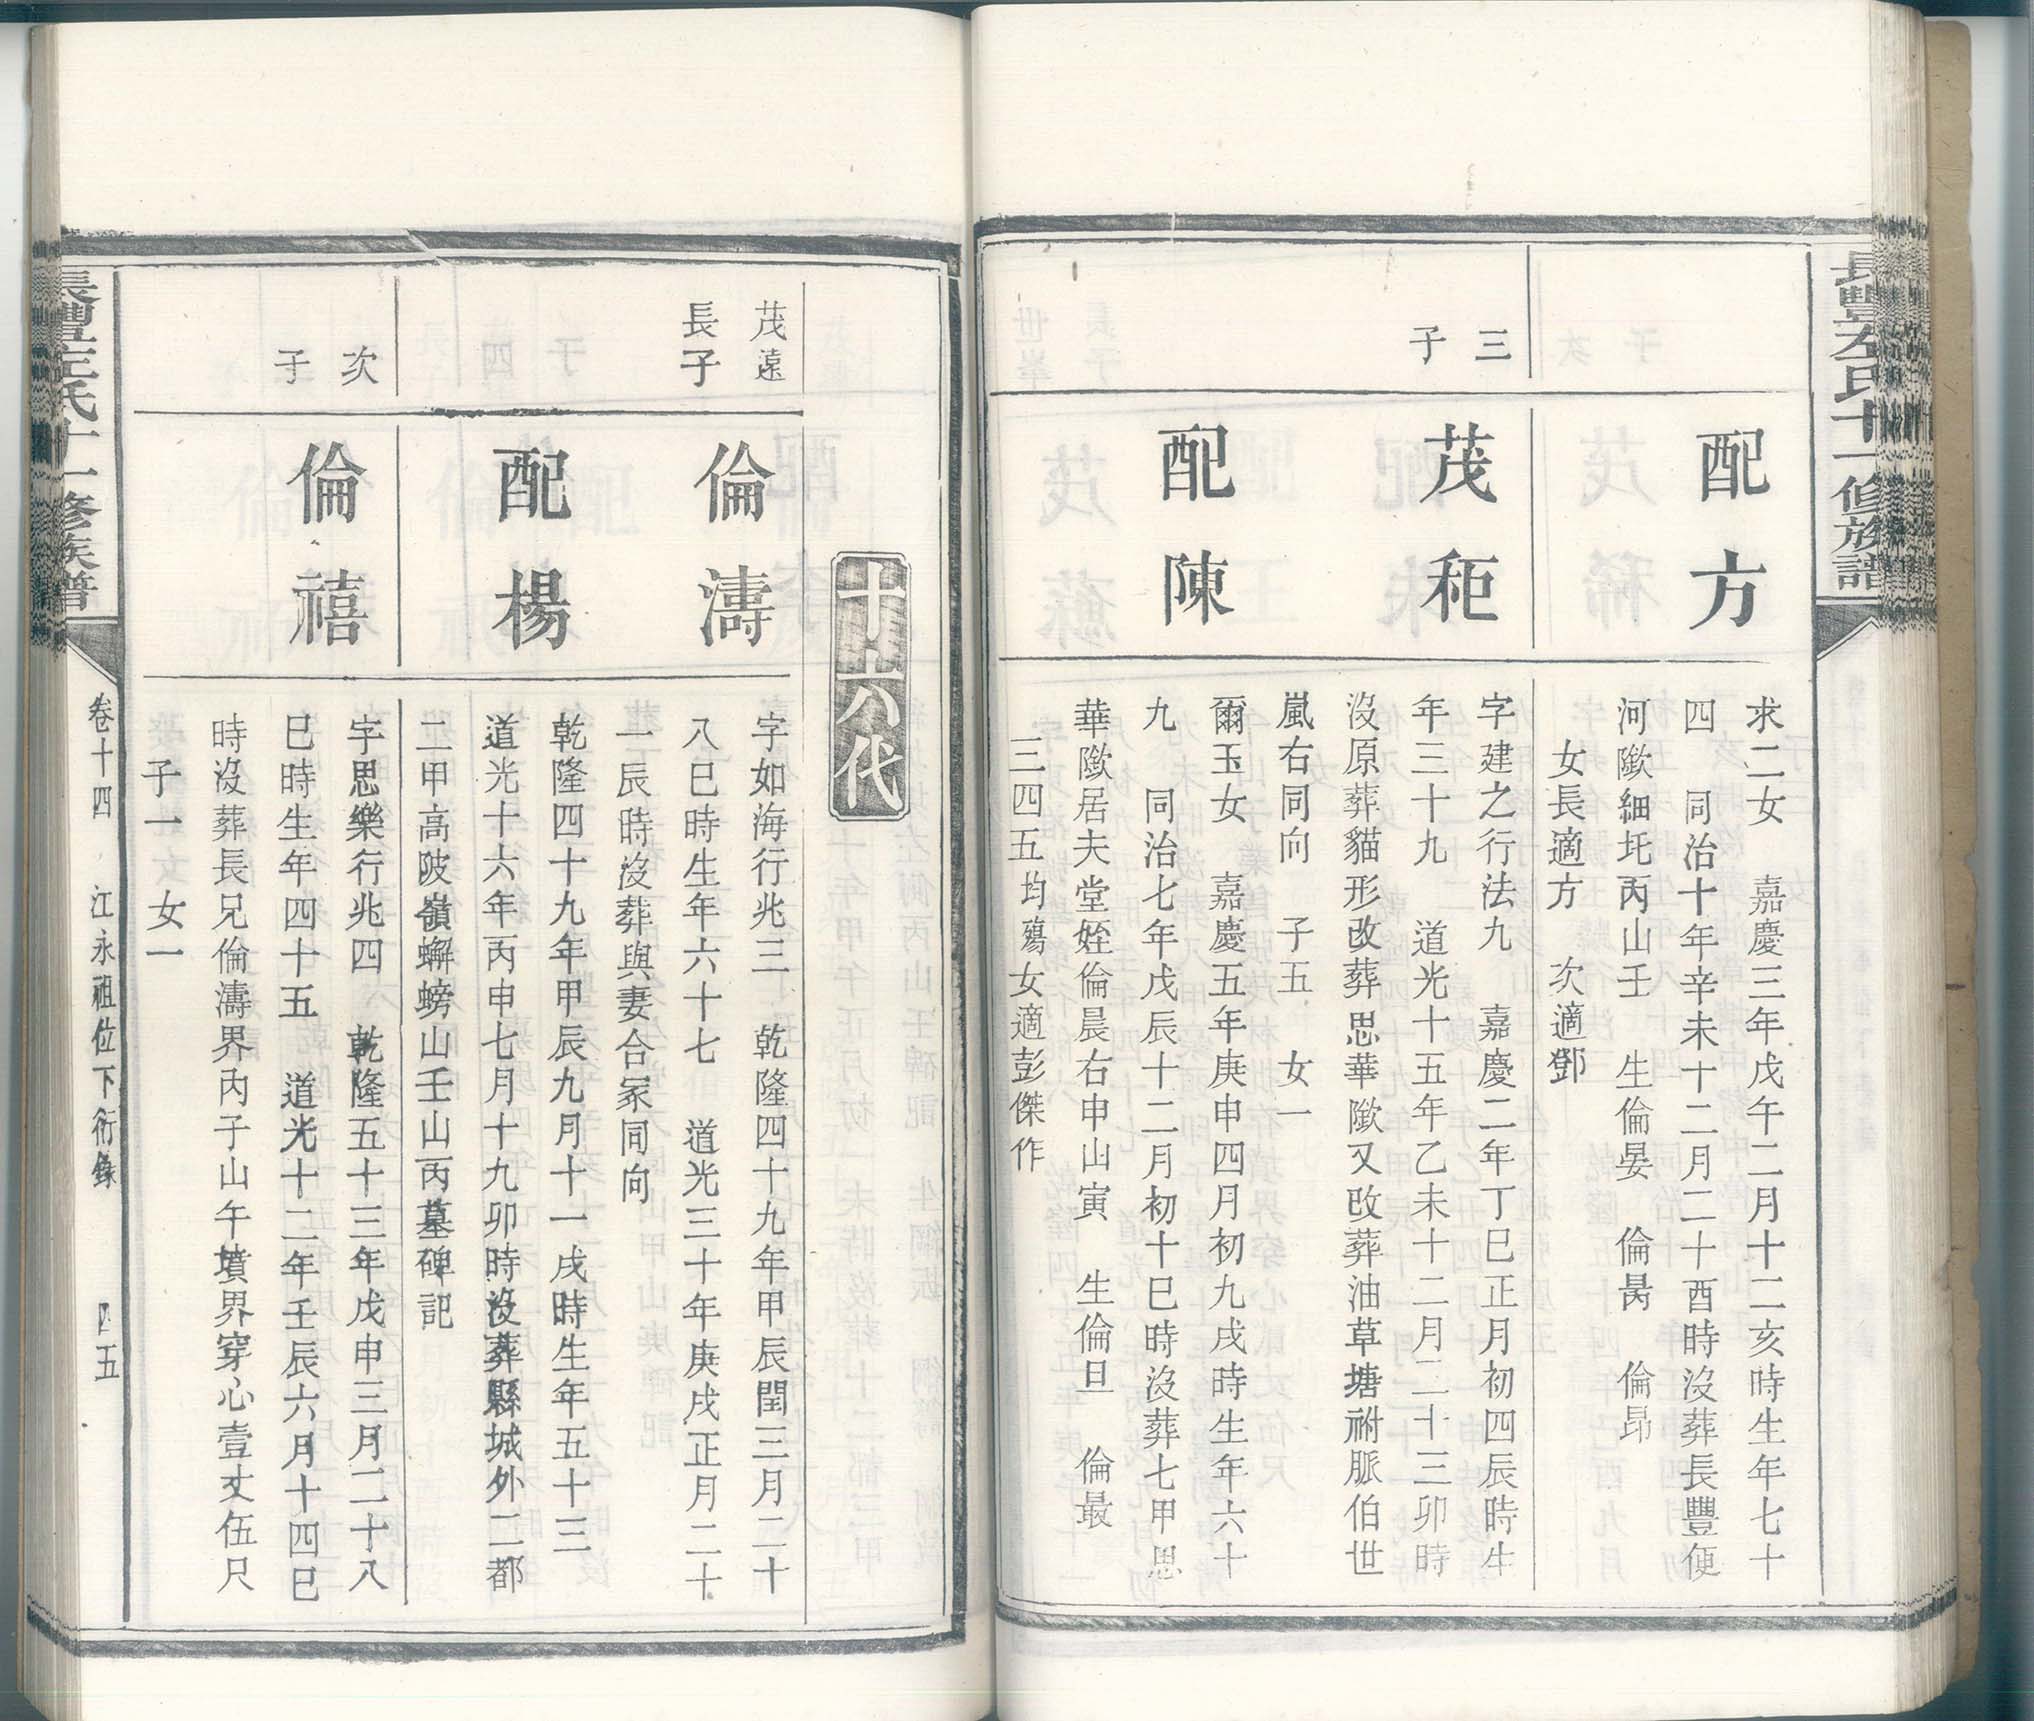 長豐左氏十一修族譜
配方
求二女 嘉慶三年戊午二月十二亥時生年七十
四 同治十年辛未十二月二十酉時沒葬長豐便
河歘細圫丙山壬 生倫晏 倫昺 倫昂
女長適方 次適鄧
三
子
茂秬
字建之行法九 嘉慶二年丁巳正月初四辰時生
年三十九 道光十五年乙未十二月二十三卯時
沒原葬貓形改葬思華歘又改葬油草塘祔脈伯世
嵐右同向 子五 女一
配陳
爾玉女 嘉慶五年庚申四月初九戌時生年六十
九 同治七年戊辰十二月初十巳時沒葬七甲思
華歘居夫堂姪倫晨右申山寅 生倫旦 倫最
三四五均殤女適彭傑作
十八代
茂遠
長子
倫濤
字如海行兆三 乾隆四十九年甲辰閏三月二十
八巳時生年六十七 道光三十年庚戌正月二十
一辰時沒葬與妻合冢同向
配楊
乾隆四十九年甲辰九月十一戌時生年五十三
道光十六年丙申七月十九卯時沒葬縣城外二都
二甲高陂嶺螃山壬山丙墓碑記
次
子
倫禧
字思樂行兆四 乾隆五十三年戊申三月二十八
巳時生年四十五 道光十二年壬辰六月十四巳
時沒葬長兄倫濤界內子山午墳界穿心壹丈伍尺
子一 女一
長豐左氏十一修族譜
卷十四 江永祖位下衍錄 四五